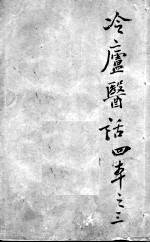 冷廬醫話四卷之三